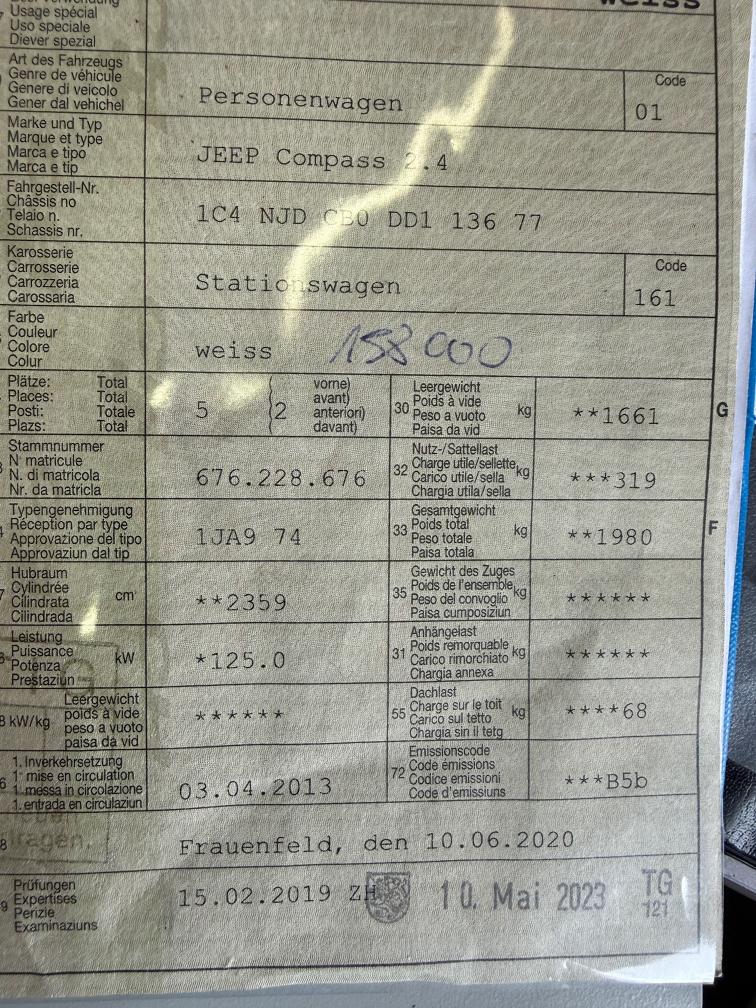 Usage spécial
Uso speciale
Diever spezial
weiss
Art des Fahrzeugs
Genre de véhicule
Genere di veicolo
Gener dal vehichel
Personenwagen
Code
01
Marke und Typ
Marque et type
Marca e tipo
Marca e tip
JEEP Compass 2.4
Fahrgestell-Nr.
Châssis no
Telaio n.
Schassis nr.
1C4 NJD CB0 DD1 136 77
Karosserie
Carrosserie
Carrozzeria
Carossaria
Stationswagen
Code
161
Farbe
Couleur
Colore
Colur
weiss 158 000
Plätze: Total
Places: Total
Posti: Totale
Plazs: Total
5 (2
vorne)
avant)
anteriori)
davant)
30 Leergewicht
Poids à vide
Peso a vuoto
Paisa da vid
kg
**1661
G
Stammnummer
N° matricule
N. di matricola
Nr. da matricla
676.228.676
32 Nutz-/Sattellast
Charge utile/sellette
Carico utile/sella
Chargia utila/sella
kg
***319
Typengenehmigung
Réception par type
Approvazione del tipo
Approvaziun dal tip
1JA9 74
33 Gesamtgewicht
Poids total
Peso totale
Paisa totala
kg
**1980
F
Hubraum
Cylindrée
Cilindrata
Cilindrada
cm³
**2359
35 Gewicht des Zuges
Poids de l'ensemble
Peso del convoglio
Paisa cumposiziun
kg
******
Leistung
Puissance
Potenza
Prestaziun
kW
*125.0
31 Anhängelast
Poids remorquable
Carico rimorchiato
Chargia annexa
kg
******
kW/kg
Leergewicht
poids à vide
peso a vuoto
paisa da vid
******
55 Dachlast
Charge sur le toit
Carico sul tetto
Chargia sin il tetg
kg
****68
1. Inverkehrsetzung
1re mise en circulation
1. messa in circolazione
1. entrada en circulaziun
03.04.2013
72 Emissionscode
Code émissions
Codice emissioni
Code d'emissiuns
***B5b
Frauenfeld, den 10.06.2020
Prüfungen
Expertises
Perizie
Examinaziuns
15.02.2019 ZH
10. Mai 2023
TG
121